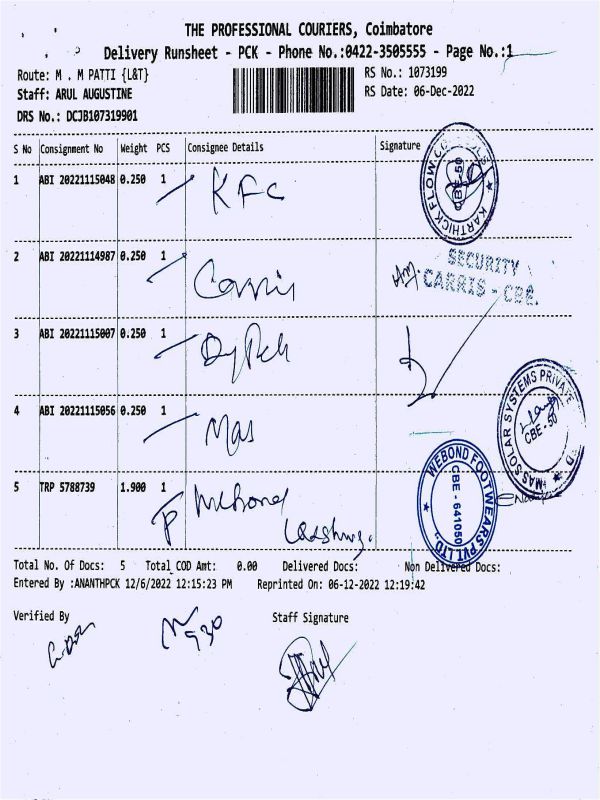 THE PROFESSIONAL COURIERS, Coimbatore
Delivery Runsheet - PCK - Phone No.:0422-3505555 - Page No.:1
Route: M . M PATTI {L&T}
RS No.: 1073199
Staff: ARUL AUGUSTINE
RS Date: 06-Dec-2022
DRS No.: DCJB107319901
S No Consignment No Weight PCS Consignee Details Signature
1 ABI 20221115048 0.250 1 KFC
KARTHICK FLOW CBE-50
2 ABI 20221114987 0.250 1 Carris
SECURITY
CARRIS - CBE.
3 ABI 20221115007 0.250 1
4 ABI 20221115056 0.250 1 Mas
MAS SOLAR SYSTEMS PRIVATE
CBE-50
5 TRP 5788739 1.900 1 Webond
WEBOND FOOTWEARS PVT LTD
CBE - 641050
Total No. Of Docs: 5 Total COD Amt: 0.00 Delivered Docs: Non Delivered Docs:
Entered By :ANANTHPCK 12/6/2022 12:15:23 PM Reprinted On: 06-12-2022 12:19:42
Verified By
Staff Signature